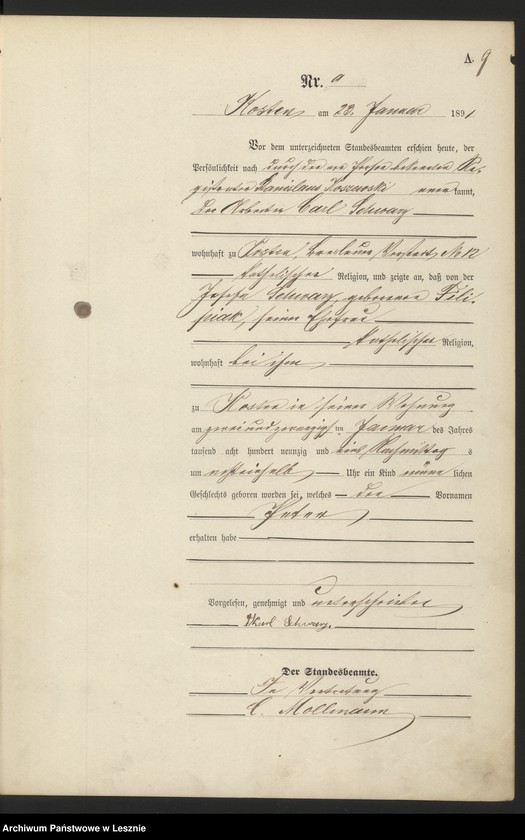 A. 9
Nr. 9
Kosten am 23. Januar 1891
Vor dem unterzeichneten Standesbeamten erschien heute, der
Persönlichkeit nach durch den von Person bekannten Re-
gistrator Stanislaus Kosmoski anerkannt,
der Arbeiter Carl Schwarz
wohnhaft zu Kosten, Breslauer Vorstadt, No 12
katholischer Religion, und zeigte an, daß von der
Josefa Schwarz, geborenen Fili-
piak, seiner Ehefrau
katholischer Religion,
wohnhaft bei ihm
zu Kosten in seiner Wohnung
am zweiundzwanzigsten Januar des Jahres
tausend acht hundert neunzig und eins Nachmittags
um Uhr ein Kind männlichen
Geschlechts geboren worden sei, welches den Vornamen
Peter
erhalten habe
Vorgelesen, genehmigt und unterschrieben
Karl Schwarz.
Der Standesbeamte.
In Vertretung
C. Mollmann
Archiwum Państwowe w Lesznie